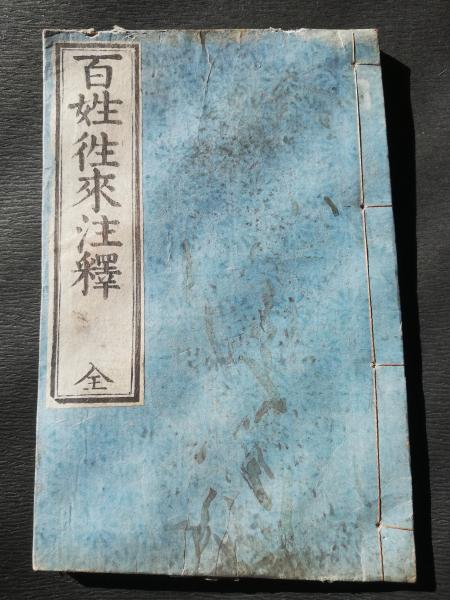 百姓徃來注釋
全